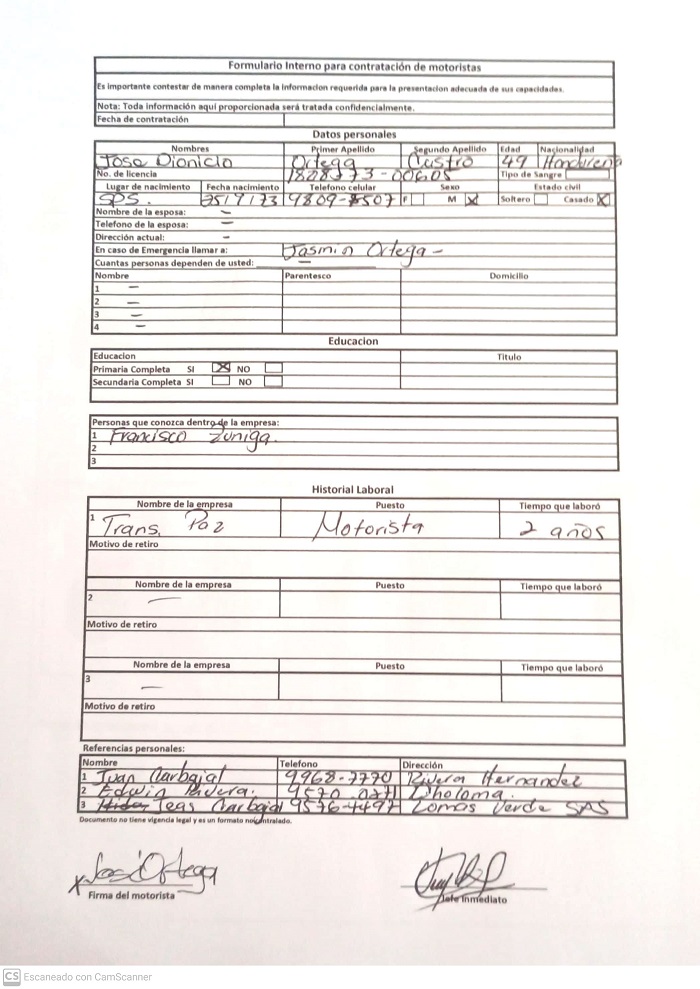 Formulario Interno para contratación de motoristas
Es importante contestar de manera completa la informacion requerida para la presentacion adecuada de sus capacidades.
Nota: Toda información aquí proporcionada será tratada confidencialmente.
Fecha de contratación
Datos personales
Nombres Primer Apellido Segundo Apellido Edad Nacionalidad
Jose Dionicio Ortega Castro 49 Hondureño
No. de licencia Tipo de Sangre
Lugar de nacimiento Fecha nacimiento Telefono celular Sexo Estado civil
SPS. 9809-8507 F M X Soltero Casado X
Nombre de la esposa: —
Telefono de la esposa: —
Dirección actual: —
En caso de Emergencia llamar a: Jasmin Ortega –
Cuantas personas dependen de usted: —
Nombre Parentesco Domicilio
1 —
2 —
3 —
4 —
Educacion
Educacion Titulo
Primaria Completa SI X NO
Secundaria Completa SI NO
Personas que conozca dentro de la empresa:
1 Francisco Zuniga.
2
3
Historial Laboral
Nombre de la empresa Puesto Tiempo que laboró
1 Trans. Paz Motorista 2 años
Motivo de retiro
Nombre de la empresa Puesto Tiempo que laboró
2 —
Motivo de retiro
Nombre de la empresa Puesto Tiempo que laboró
3 —
Motivo de retiro
Referencias personales:
Nombre Telefono Dirección
1 Juan Carbajal 9968-7770 Rivera Hernandez
2 Edwin Rivera. 9570 Choloma.
3 Carbajal 9576-4497 Lomas Verde SPS
Documento no tiene vigencia legal y es un formato no controlado.
José Ortega
X
Firma del motorista Jefe Inmediato
CS Escaneado con CamScanner